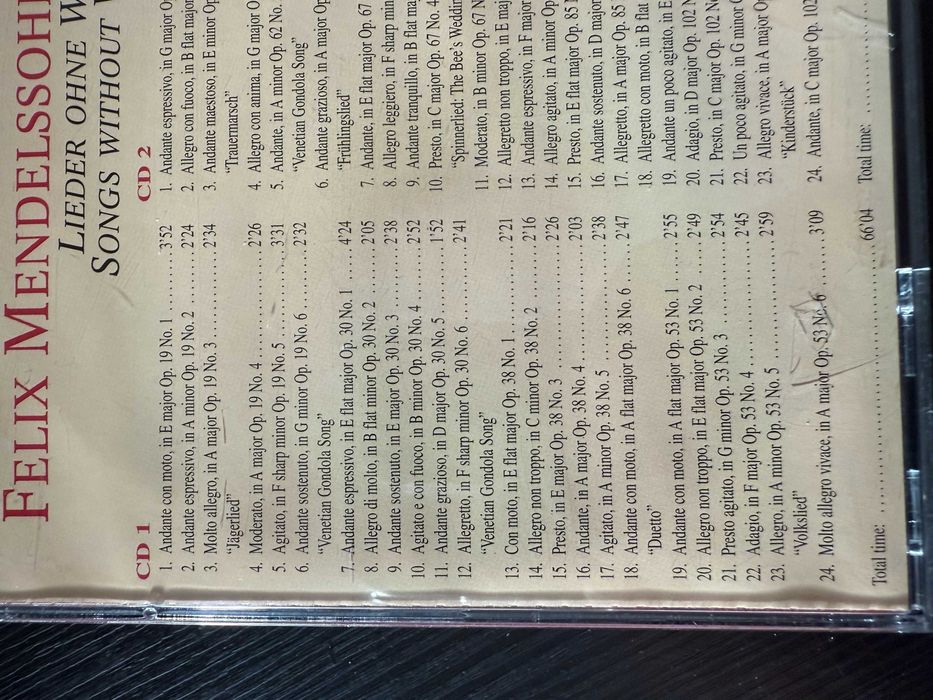 FELIX MENDELSSOH
LIEDER OHNE W
SONGS WITHOUT
CD 1
1. Andante con moto, in E major Op. 19 No. 1 3'52
2. Andante espressivo, in A minor Op. 19 No. 2 2'24
3. Molto allegro, in A major Op. 19 No. 3 2'34
"Jägerlied"
4. Moderato, in A major Op. 19 No. 4 2'26
5. Agitato, in F sharp minor Op. 19 No. 5 3'31
6. Andante sostenuto, in G minor Op. 19 No. 6 2'32
"Venetian Gondola Song"
7. Andante espressivo, in E flat major Op. 30 No. 1 4'24
8. Allegro di molto, in B flat minor Op. 30 No. 2 2'05
9. Andante sostenuto, in E major Op. 30 No. 3 2'38
10. Agitato e con fuoco, in B minor Op. 30 No. 4 2'52
11. Andante grazioso, in D major Op. 30 No. 5 1'52
12. Allegretto, in F sharp minor Op. 30 No. 6 2'41
"Venetian Gondola Song"
13. Con moto, in E flat major Op. 38 No. 1 2'21
14. Allegro non troppo, in C minor Op. 38 No. 2 2'16
15. Presto, in E major Op. 38 No. 3 2'26
16. Andante, in A major Op. 38 No. 4 2'03
17. Agitato, in A minor Op. 38 No. 5 2'38
18. Andante con moto, in A flat major Op. 38 No. 6 2'47
"Duetto"
19. Andante con moto, in A flat major Op. 53 No. 1 2'55
20. Allegro non troppo, in E flat major Op. 53 No. 2 2'49
21. Presto agitato, in G minor Op. 53 No. 3 2'54
22. Adagio, in F major Op. 53 No. 4 2'45
23. Allegro, in A minor Op. 53 No. 5 2'59
"Volkslied"
24. Molto allegro vivace, in A major Op. 53 No. 6 3'09
Total time: 66'04
CD 2
1. Andante espressivo, in G major O
2. Allegro con fuoco, in B flat major
3. Andante maestoso, in E minor Op
"Trauermarsch"
4. Allegro con anima, in G major O
5. Andante, in A minor Op. 62 No.
"Venetian Gondola Song"
6. Andante grazioso, in A major Op
"Frühlingslied"
7. Andante, in E flat major Op. 67
8. Allegro leggiero, in F sharp min
9. Andante tranquillo, in B flat ma
10. Presto, in C major Op. 67 No. 4
"Spinnerlied: The Bee's Weddin
11. Moderato, in B minor Op. 67 N
12. Allegretto non troppo, in E maj
13. Andante espressivo, in F major
14. Allegro agitato, in A minor Op
15. Presto, in E flat major Op. 85 N
16. Andante sostenuto, in D major
17. Allegretto, in A major Op. 85
18. Allegretto con moto, in B flat
19. Andante un poco agitato, in E
20. Adagio, in D major Op. 102 N
21. Presto, in C major Op. 102 No
22. Un poco agitato, in G minor O
23. Allegro vivace, in A major Op
"Kinderstück"
24. Andante, in C major Op. 102
Total time: